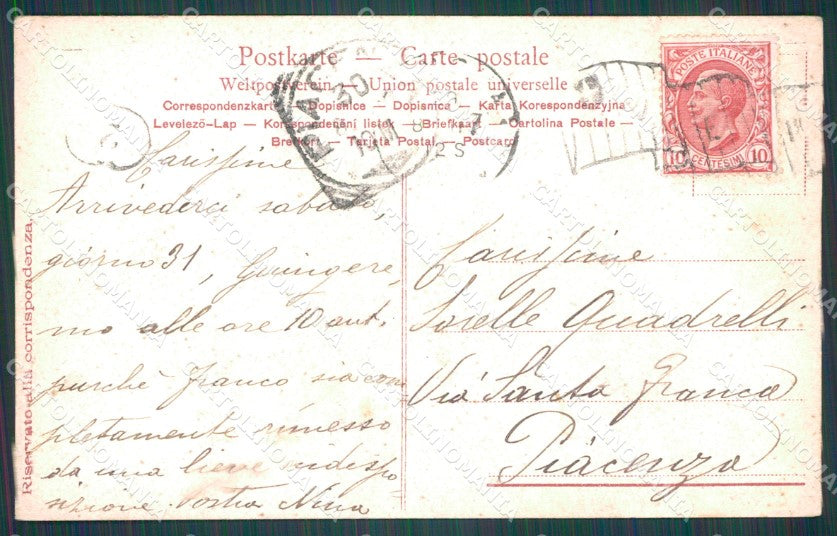 Postkarte — Carte postale
Weltpostverein — Union postale universelle
Correspondenzkarte — Dopisnice — Dopisnica — Karta Korespondenzyjna
Levelező-Lap — Korespondenční listek — Briefkaart — Cartolina Postale —
Brevkort — Tarjeta Postal — Postcard
POSTE ITALIANE
10 CENTESIMI 10
Riservato alla corrispondenza
Carissime
Arrivederci sabato,
giorno 31, Giungere,
mo alle ore 10 ant.
purchè Franco sia com
pletamente rimesso
da una lieve indispo,
sizione. Vostra Nina
Carissime
Sorelle Quadrelli
Via Santa Franca
Piacenza
CARTOLINOMANIA